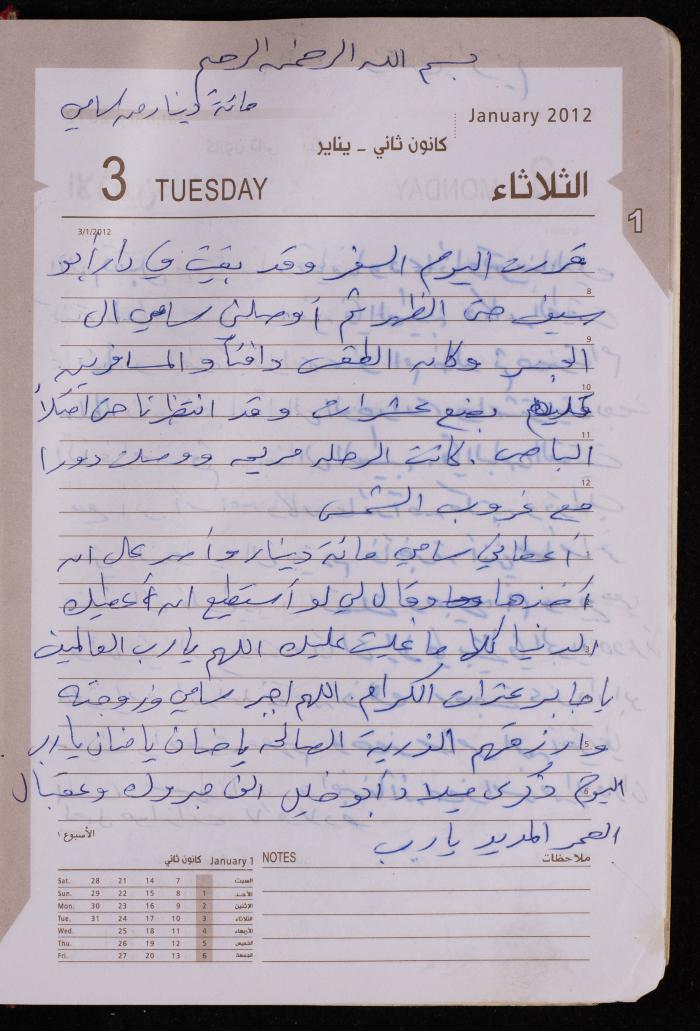 بسم الله الرحمن الرحيم
مائة دينار من سامي
January 2012
كانون ثاني - يناير
3 TUESDAY الثلاثاء
1
3/1/2012
قررت اليوم السفر وقد بقيت في دار أبو
8
سيف حتى الظهر ثم أوصلني سامي الى
9
الجسر وكان الطقس دافئاً والمسافرين
10
قليلة بضع عشرات وقد انتظرنا حتى امتلأ
11
الباص. كانت الرحلة مريحه ووصلت دورا
12
مع غروب الشمس
أعطاني سامي مائة دينار وأصر على ان
أخذها وقال لي لو أستطيع ان أعطيك
الدنيا كلها ما غليت عليك اللهم يا رب العالمين
يا جابر عثرات الكرام. اللهم اجبر سامي وزوجته
وارزقهم الذرية الصالحه يا حنان يا منان يا رب
5
اليوم ذكرى ميلاد أبو خليل الف مبروك وعقبال
6
العمر المديد يا رب
الأسبوع ١
January 1 كانون ثاني
Sat. 28 21 14 7 السبت
Sun. 29 22 15 8 1 الأحد
Mon. 30 23 16 9 2 الإثنين
Tue. 31 24 17 10 3 الثلاثاء
Wed. 25 18 11 4 الأربعاء
Thu. 26 19 12 5 الخميس
Fri. 27 20 13 6 الجمعة
NOTES ملاحظات